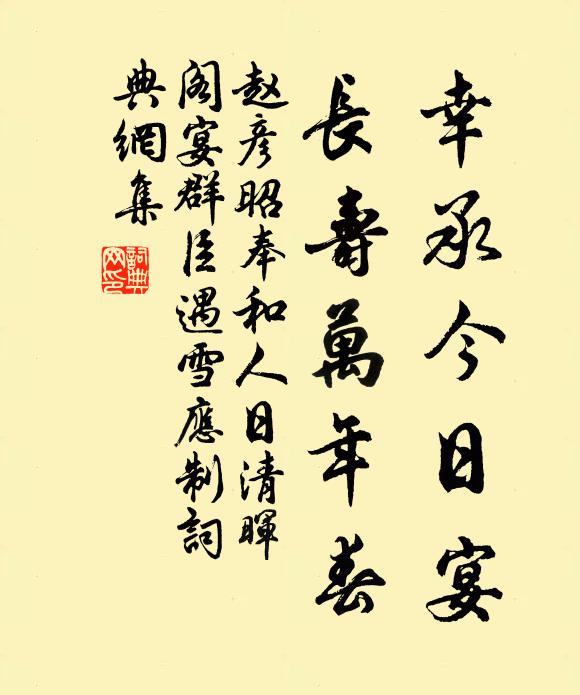 幸承今日宴
長壽萬年春
赵彦昭奉和人日清暉
阁宴群臣遇雪應制詞
典網集
詞典网印